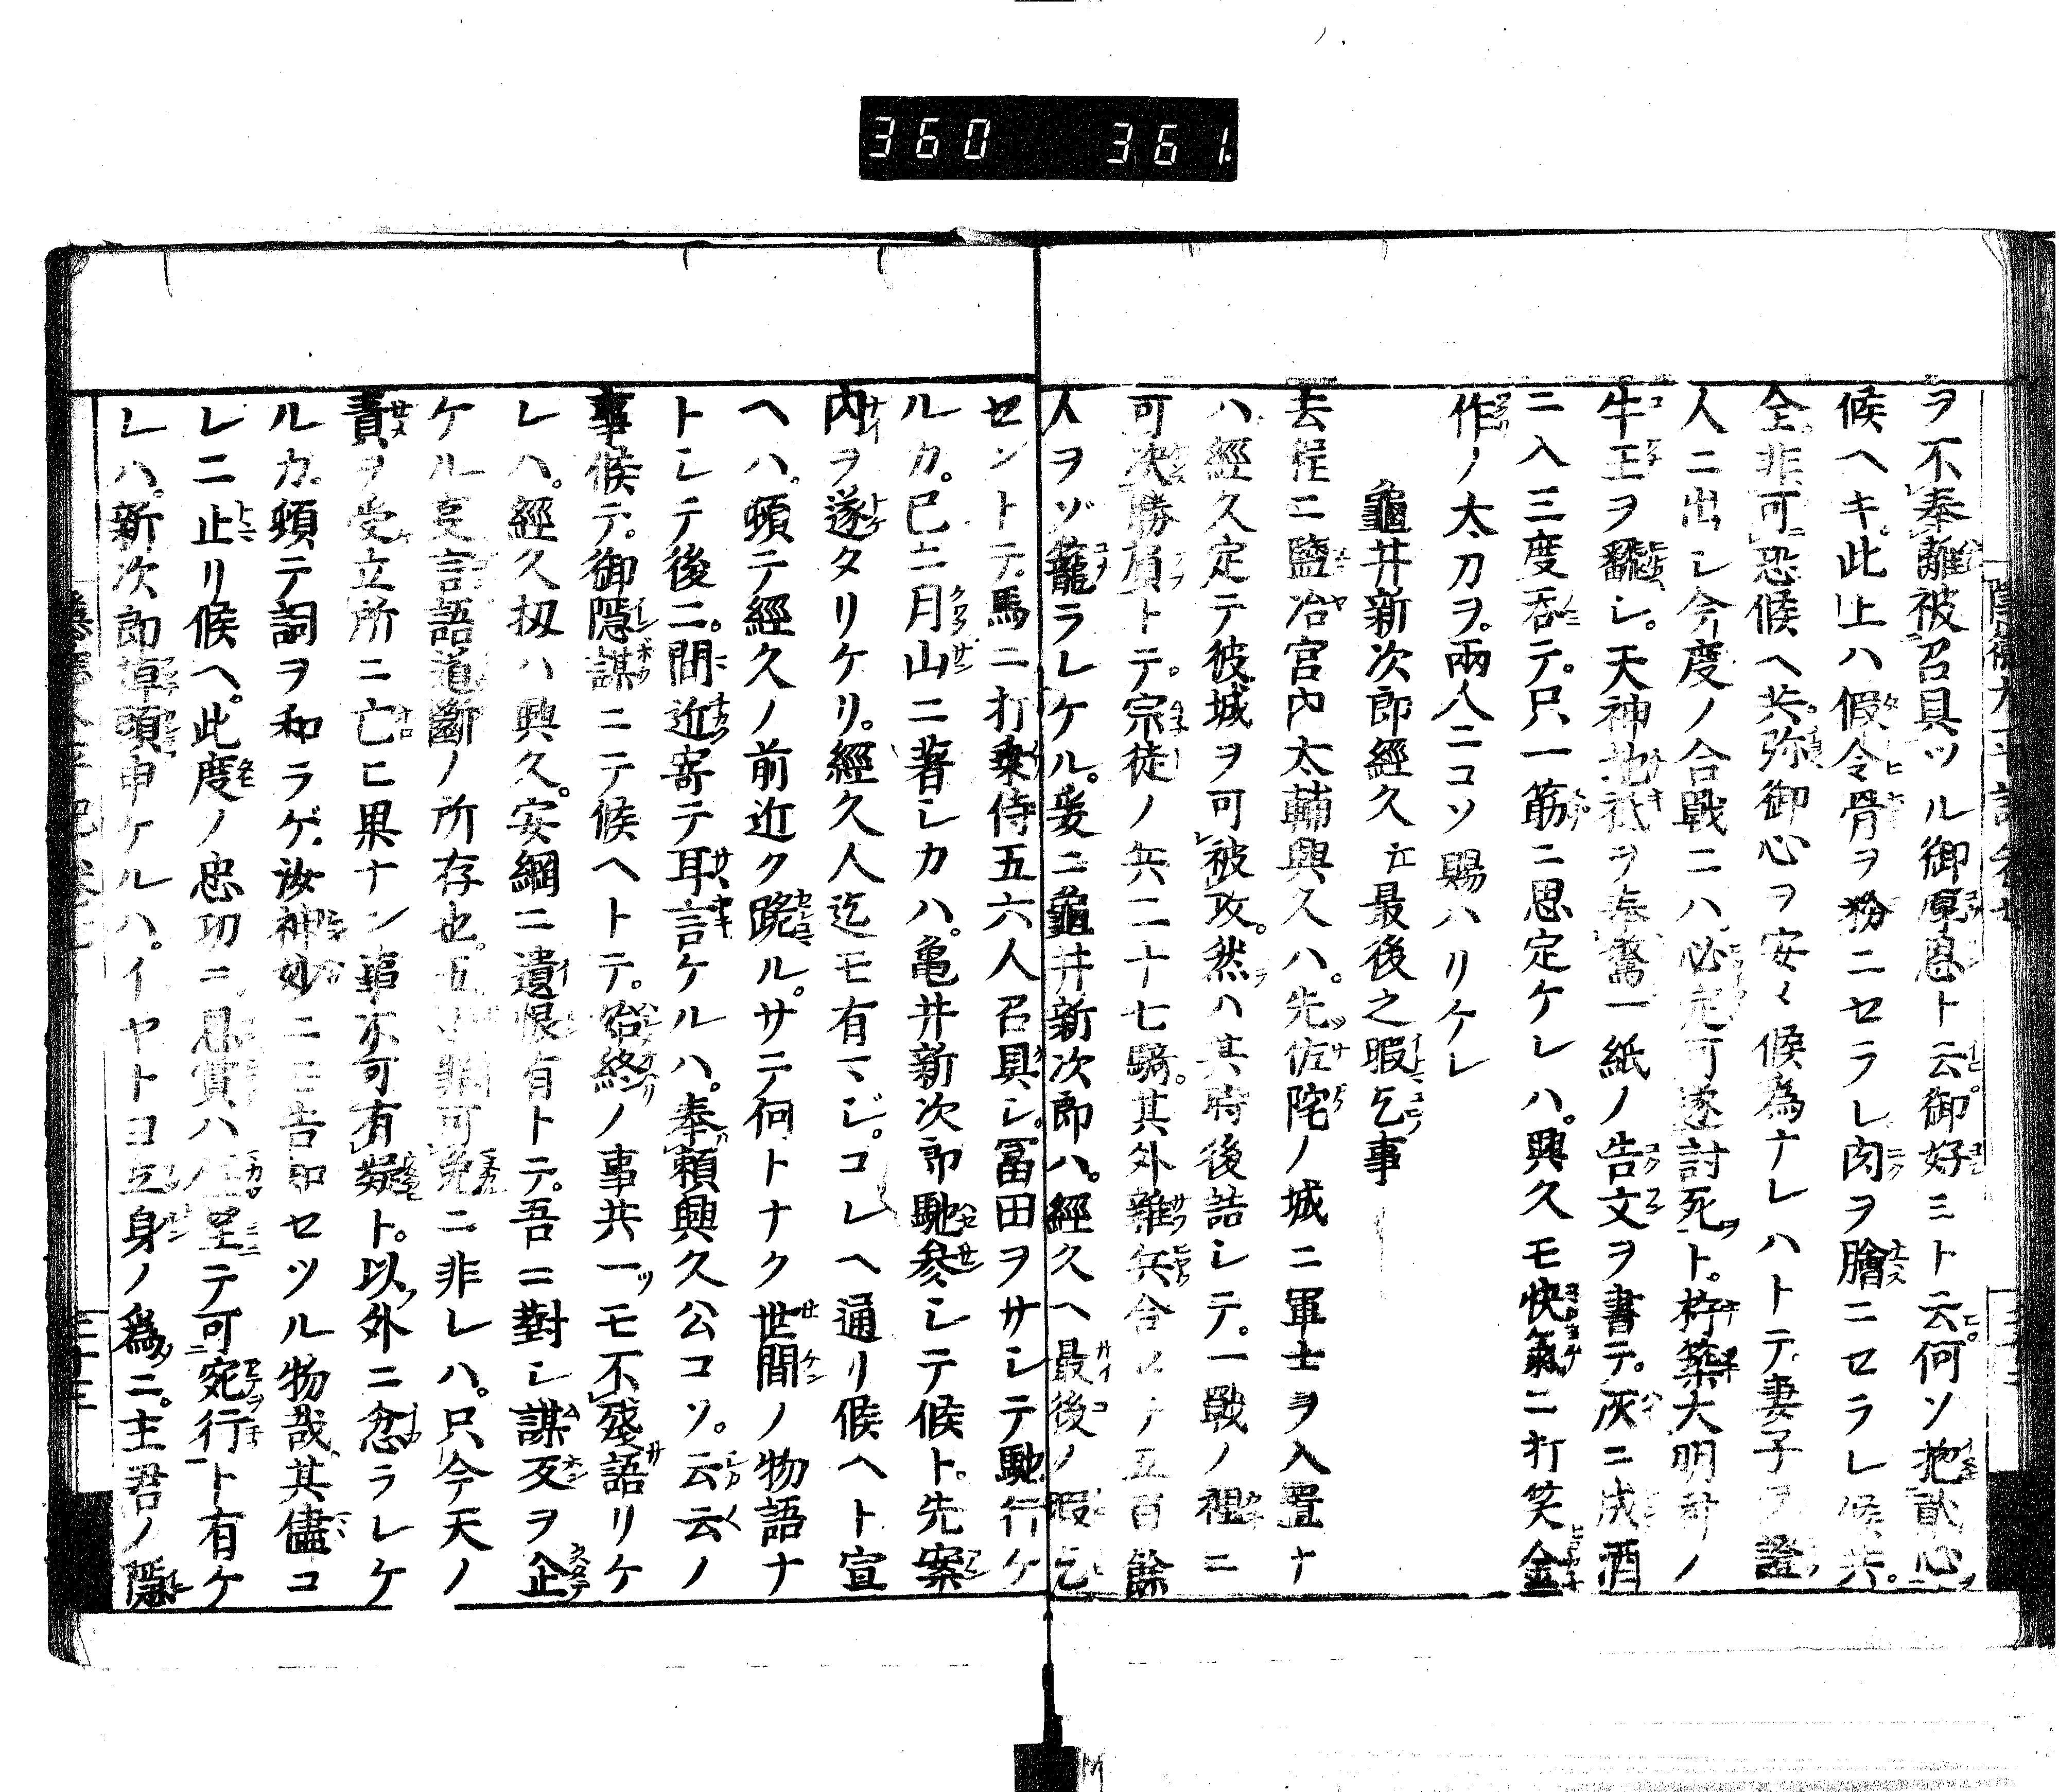 360 361
ヲ不奉離被召具ツル御厚恩ト云御好ミト云何ソ抱貳心
候ヘキ。此上ハ假令骨ヲ粉ニセラレ肉ヲ膾ニセラレ候共。
全。非可恐候ヘ共。弥御心ヲ安々候為ナレハトテ妻子ヲ證
人ニ出シ今度ノ合戰ニハ必定可遂討死ト。杵築大明神ノ
牛王ヲ飜シ。天神地祇ヲ奉驚一紙ノ告文ヲ書テ。灰ニ成酒
ニ入三度呑テ。只一筋ニ思定ケレハ。興久モ快氣ニ打笑金
作ノ太刀ヲ。兩人ニコソ賜ハリケレ
龜井新次郎經久江最後之暇乞事
去程ニ鹽冶宮內太輔興久ハ。先佐陀ノ城ニ軍士ヲ入置ナ
ハ經久定テ彼城ヲ可被攻。然ハ其時後詰シテ。一戰ノ裡ニ
可決勝負トテ。宗徒ノ兵二十七騎。其外雜兵合メ五百餘
人ヲゾ籠ラレケル。爰ニ龜井新次郎ハ。經久ヘ最後ノ暇乞
セントテ。馬ニ打乗侍五六人召具シ。冨田ヲサシテ馳行ケ
ルカ。已ニ月山ニ著シカハ。亀井新次郎馳參シテ候ト。先案
内ヲ遂タリケリ。經久人迄モ有マジ。コレヘ通リ候ヘト宣
ヘハ。頓テ經久ノ前近ク跪ル。サテ何トナク世間ノ物語ナ
トシテ後ニ。間近寄テ耳言ケルハ。奉頼興久公コソ。云云ノ
事候テ。御隱謀ニテ候ヘトテ。始終ノ事共一ツモ不殘語リケ
レハ。經久扨ハ興久。安綱ニ遺恨有トテ。吾ニ對シ謀反ヲ企
ケル事言語道斷ノ所存也。五逆罪可免ニ非レハ。只今天ノ
責ヲ受立所ニ亡ヒ果ナン事不可有疑ト。以外ニ忿ラレケ
ルカ。頓テ詞ヲ和ラゲ。汝神妙ニモ告知セツル物哉。其儘コ
レニ止リ候ヘ。此度ノ忠功ニ恩賞ハ任望テ可宛行ト有ケ
レハ。新次郎低頭申ケルハ。イヤトヨ立身ノ為ニ。主君ノ隱